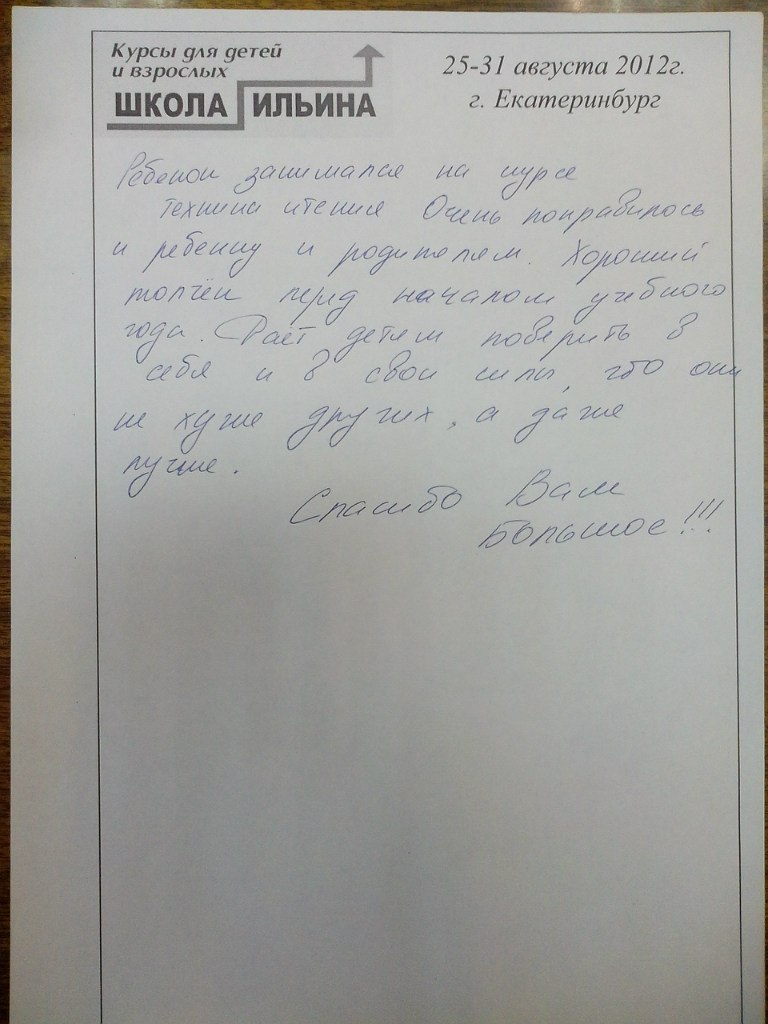 Курсы для детей
и взрослых
ШКОЛА ИЛЬИНА
25-31 августа 2012г.
г. Екатеринбург
Ребенок занимался на курсе
техника чтения Очень понравилось
и ребенку и родителям. Хороший
толчек перед началом учебного
года. Дает детям поверить в
себя и в свои силы, что они
не хуже других, а даже
лучше.
Спасибо Вам
Большое!!!